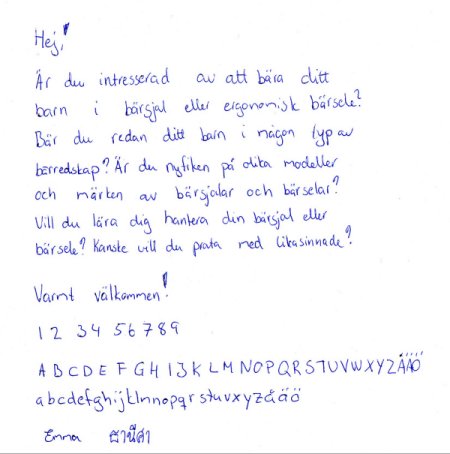 Hej!
Är du intresserad av att bära ditt
barn i bärsjal eller ergonomisk bärsele?
Bär du redan ditt barn i någon typ av
bärredskap? Är du nyfiken på olika modeller
och märken av bärsjalar och bärselar?
Vill du lära dig hantera din bärsjal eller
bärsele? Kanske vill du prata med likasinnade?
Varmt välkommen!
1 2 3 4 5 6 7 8 9
A B C D E F G H I J K L M N O P Q R S T U V W X Y Z Å Ä Ö
a b c d e f g h i j k l m n o p q r s t u v x y z å ä ö
Emma ธานีศา